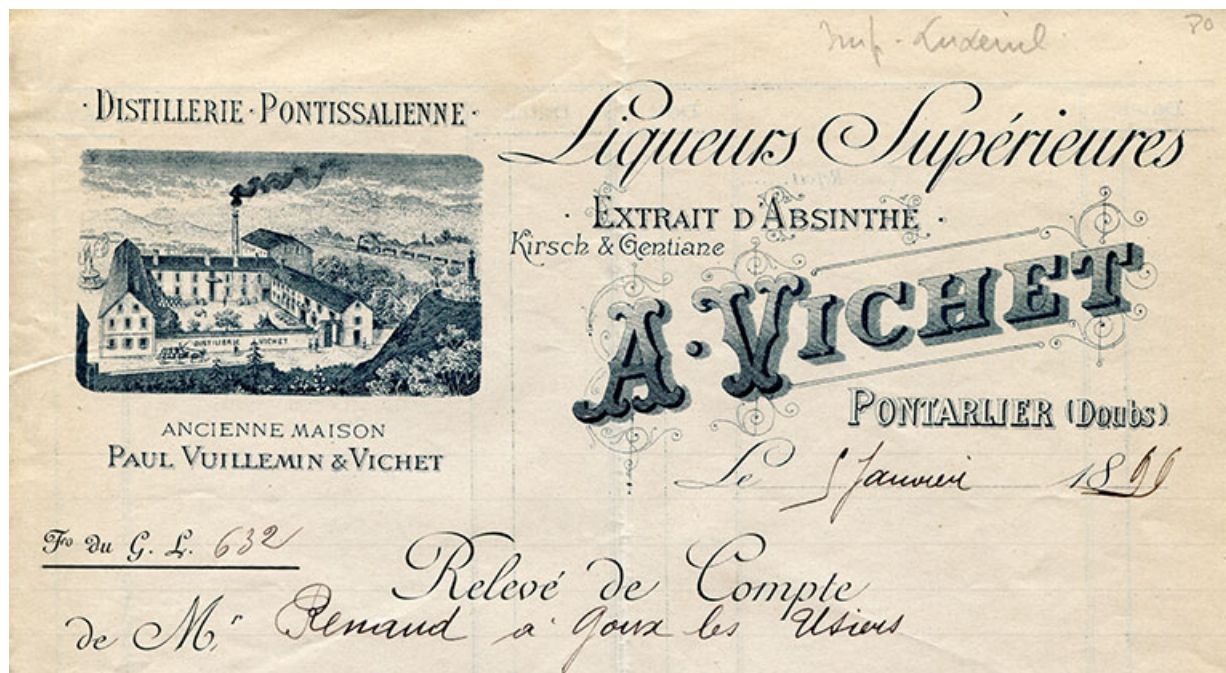 Imp - Luxeuil
· DISTILLERIE · PONTISSALIENNE ·
DISTILLERIE A VICHET
ANCIENNE MAISON
PAUL VUILLEMIN & VICHET
Liqueurs Supérieures
· EXTRAIT D'ABSINTHE ·
Kirsch & Gentiane
A. VICHET
PONTARLIER (Doubs)
Le 5 Janvier 1899
Fo du G. L. 632
Relevé de Compte
de Mr. Renaud a Goux les Usiers